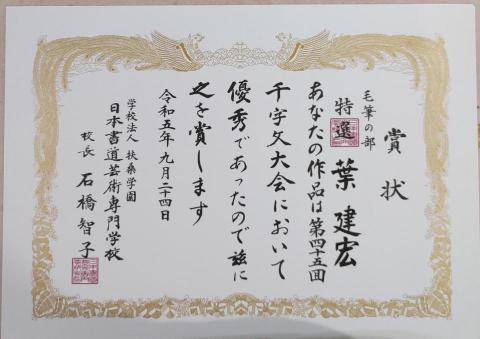 賞状
毛筆の部
特選 葉建宏
あなたの作品は第四十五回
千字文大会において
優秀であったので茲に
之を賞します
令和五年九月二十四日
学校法人 扶桑学園
日本書道芸術専門学校
校長 石橋智子